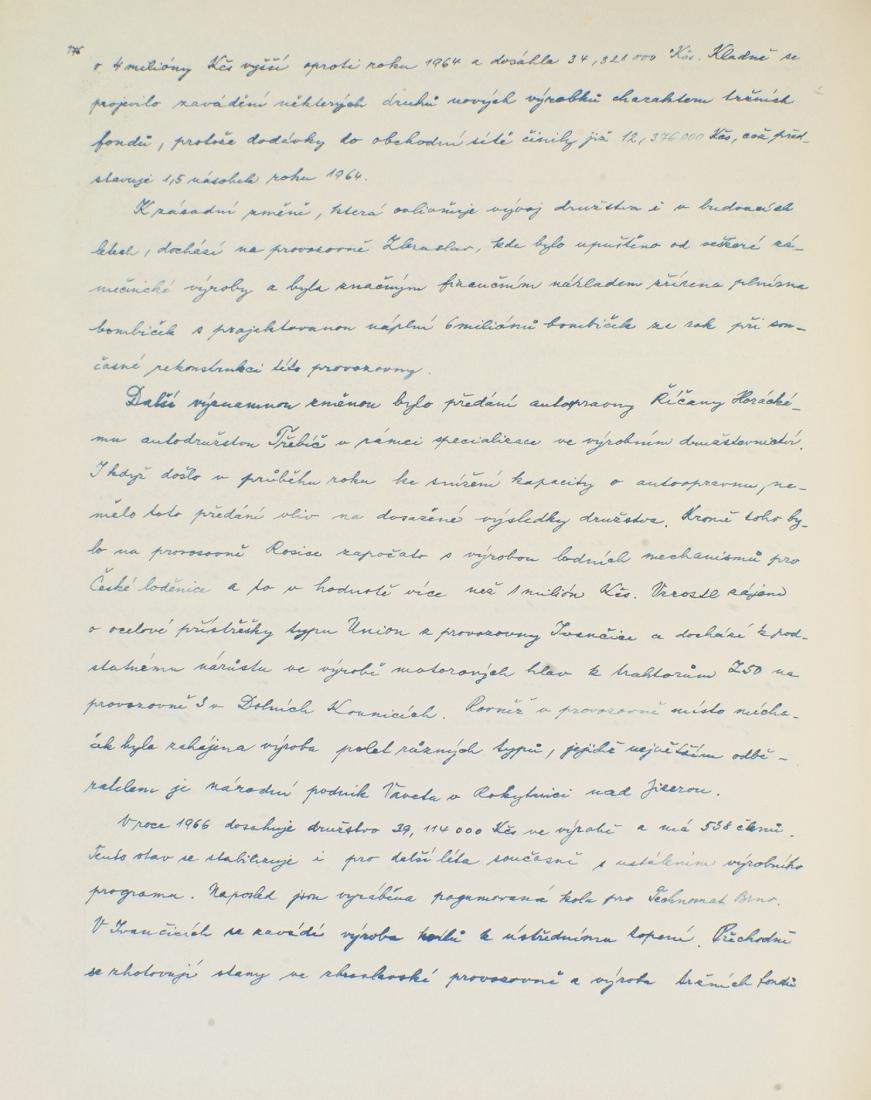 176
o 4 milióny Kčs vyšší oproti roku 1964 a dosáhla 34,328 000 Kčs. Kladně se
projevilo zavádění některých druhů nových výrobků charakteru tržních
fondů, protože dodávky do obchodní sítě činily již 12,376 000 Kčs, což před-
stavuje 1,5 násobek roku 1964.
K zásadní změně, která ovlivňuje vývoj družstva i v budoucích
letech, dochází na provozovně Zbraslav, kde bylo upuštěno od veškeré zá-
mečnické výroby a byla značným finančním nákladem zřízena plnírna
bombiček s projektovanou náplní 6 miliónů bombiček za rok při sou-
časné rekonstrukci této provozovny.
Další významnou změnou bylo předání autopravny Říčany Horácké-
mu autodružstvu Třebíč v rámci specializace ve výrobním družstevnictví.
I když došlo v průběhu roku ke snížení kapacity o autoopravnu, ne-
mělo toto předání vliv na dosažené výsledky družstva. Kromě toho by-
lo na provozovně Rosice započato s výrobou lodních mechanismů pro
České loděnice a to v hodnotě více než 1 milión Kčs. Vzrostl zájem
o ocelové přístřešky typu Union z provozovny Ivančice a dochází k pod-
statnému nárůstu ve výrobě motorových hlav k traktorům Z50 na
provozovně 3 v Dolních Kounicích. Rovněž v provozovně místo nícha-
ček byla zahájena výroba palet různých typů, jejichž největším odbě-
ratelem je národní podnik Vaveta v Rokytnici nad Jizerou.
V roce 1966 dosahuje družstvo 39,114 000 Kčs ve výrobě a má 538 členů.
Tento stav se stabilizuje i pro další léta současně s ustálením výrobního
programu. Naposled jsou vyráběna pogumovaná kola pro Technomat Brno.
V Ivančicích se zavádí výroba kotlů k ústřednímu topení. Přechodně
se zhotovují stany ve zbraslavské provozovně a výroba tržních fondů